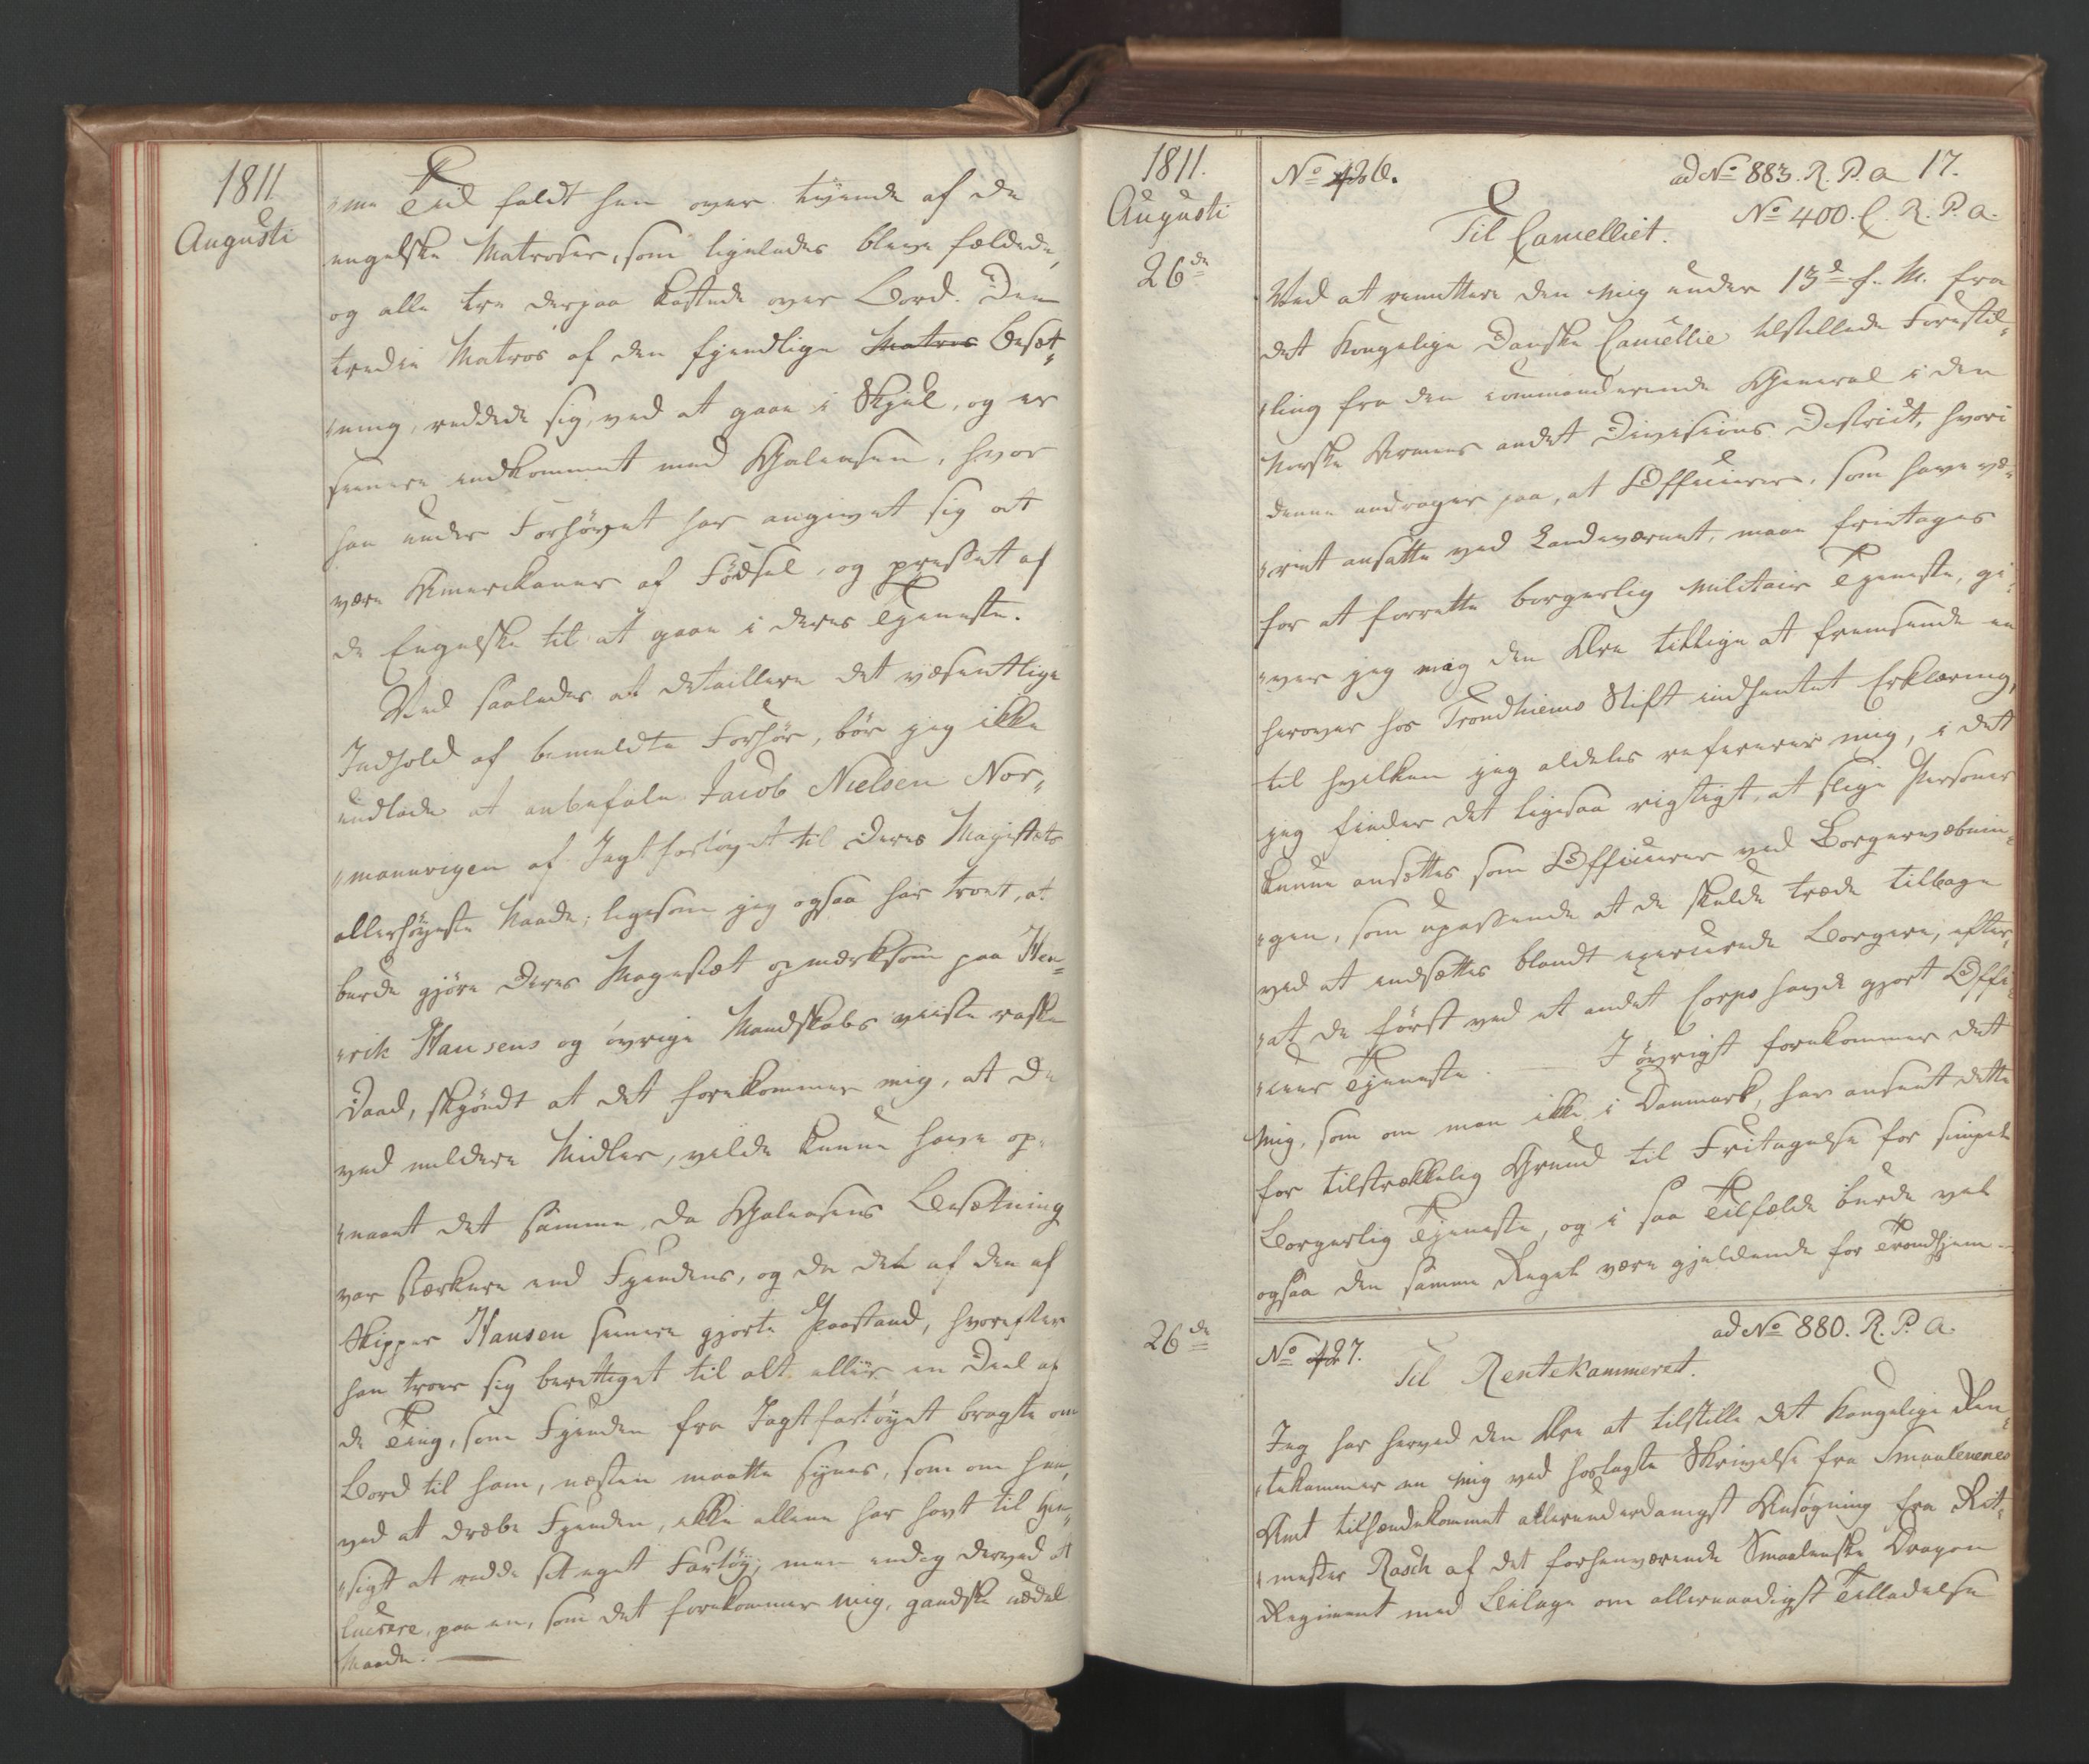 1811
Augusti
"me Tid faldt han over tvende af de
engelske Matroser, som ligeledes bleve fældede,
og alle tre derpaa kastede over Bord. Den
tredie Matros af den fjendlige Matros Besæt"
"ning, reddede sig, ved at gaae i Skjul, og er
senere indkommet med Galeasen, hvor
han under Forhøret har angivet sig at
være Amerikaner af Fødsel, og presset af
de Engelske til at gaae i deres Tjeneste.
Ved saaledes at detaillere det væsentlige
Indhold af bemeldte Forhør, bør jeg ikke
undlade at anbefale Jacob Nielsen Nor"
"mannvigen af Jagtfartøyet til Deres Majestæts
allerhøyeste Naade; ligesom jeg ogsaa har troet, at
burde gjøre Deres Majestæt opmærksom paa Hen"
"rik Hansens og øvrige Mandskabs viiste raske
Daad, skjøndt at det forekommer mig, at de
ved mildere Midler, vilde kunne have op"
"naaet det samme, da Galeasens Besætning
var stærkere end Fjendens, og da det af den af
Skipper Hansen senere gjorte Paastand, hvorefter
han troer sig berettiget til alt eller en Deel af
de Ting, som Fjenden fra Jagtfartøyet bragte om
Bord til ham, næsten maatte synes, som om han,
ved at dræbe Fjenden, ikke allene har havt til Hen"
"sigt at redde sit eget Fartøy, men endog derved at
lucrere, paa en, som det forekommer mig, gandske uædel
Maade.
1811.
Augusti
26de
No 426.
ad No 883. R. P. a 17.
No 400. C. R. P. a.
Til Cancelliet.
Ved at remittere den mig under 13d f. M. fra
det Kongelige Danske Cancellie tilstillede Forestil"
"ling fra den commanderende General i den
Norske Armees andet Divisions District, hvori
denne andrager paa, at Officierer, som have væ"
"ret ansatte ved Landeværnet, maae fritages
for at forrette borgerlig militair Tjeneste, gi"
"ver jeg mig den Ære tillige at fremsende en
herover hos Trondhiems Stift indhentet Erklæring,
til hvilken jeg aldeles refererer mig, i det
jeg finder det ligesaa rigtigt, at slige Personer
kunne ansættes som Officierer ved Borgervæbnin"
"gen, som upassende at de skulde træde tilbage
ved at indsættes blandt exercerende Borgere, efter"
"at de først ved et andet Corps havde gjort Offi"
"ceer Tjeneste. I øvrigt forekommer det
mig, som om man ikke i Danmark, har anseet dette
for tilstrækkelig Grund til Fritagelse for simpel
Borgerlig Tjeneste, og i saa Tilfælde burde vel
ogsaa den samme Regel være gjældende for Trondhjem.
26de
No 427.
ad No 880. R. P. a.
Til Rentekammeret.
Jeg har herved den Ære at tilstille det Kongelige Ren"
"tekammer en mig ved hoslagte Skrivelse fra Smaalenenes
Amt tilhændekommet allerunderdanigst Ansøgning fra Rit"
"mester Rasch af det forhenværende Smaalenske Dragon
Regiment med Bilage om allernaadigst Tilladelse